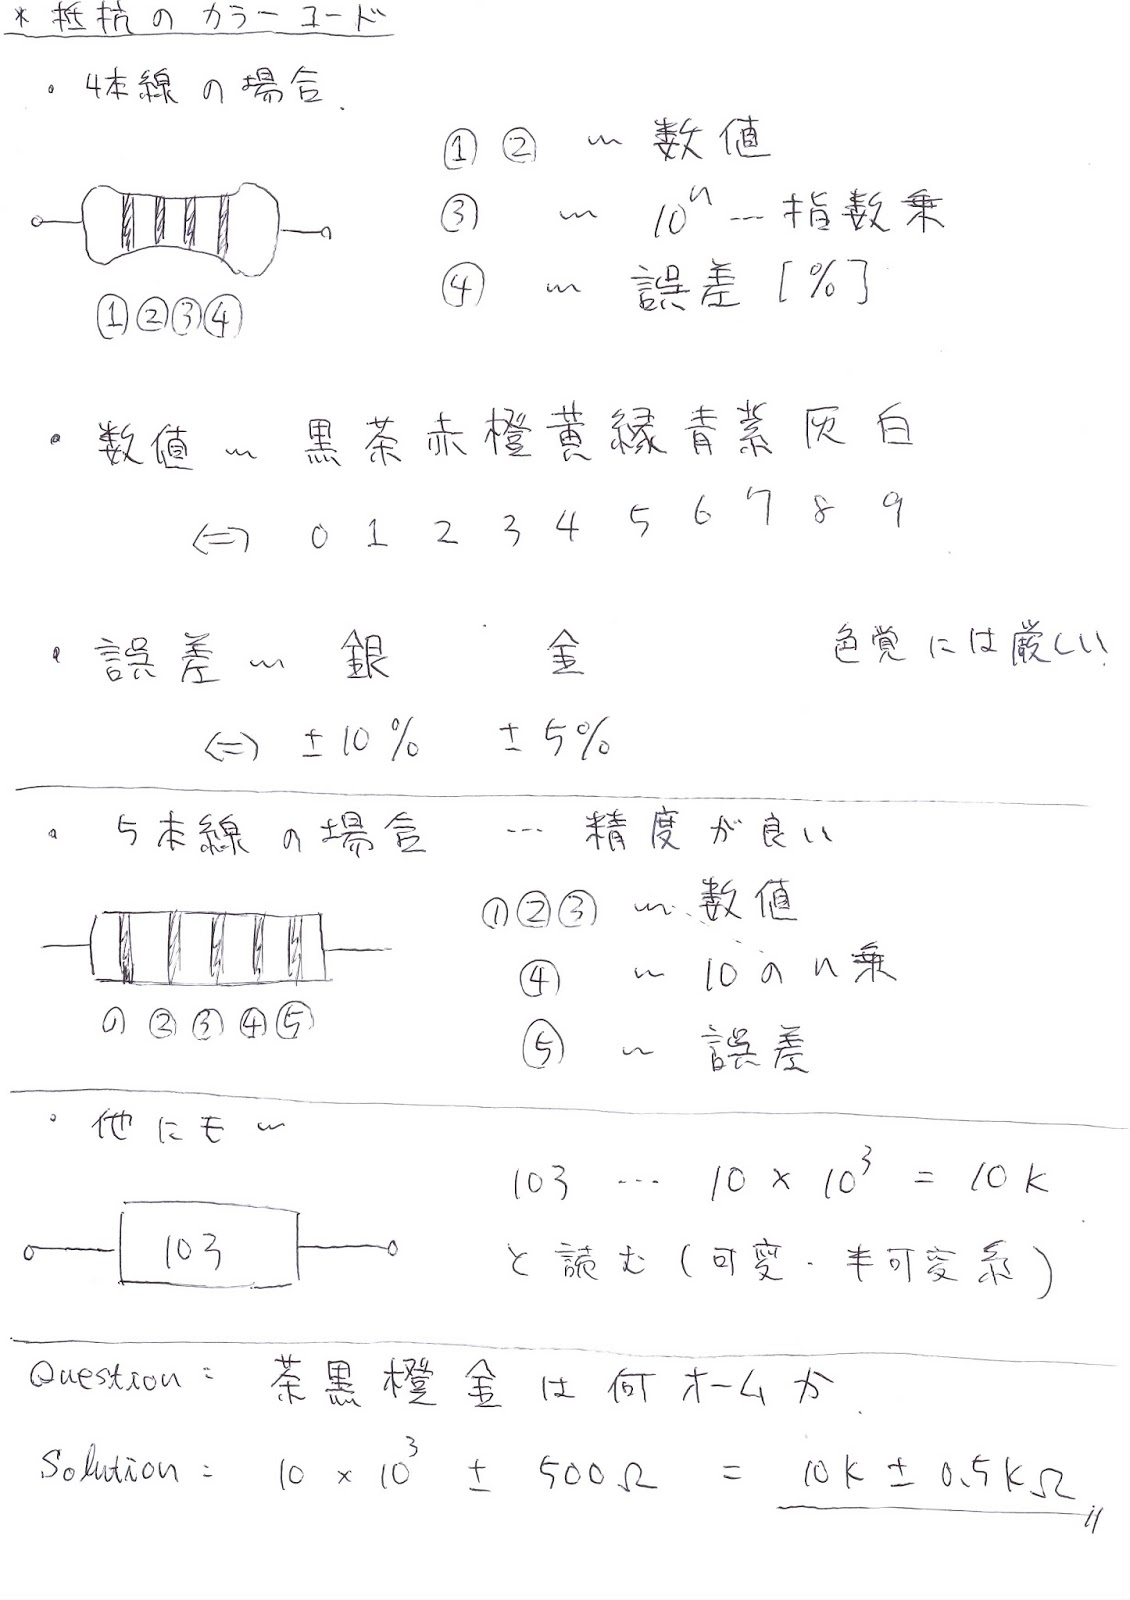 * 抵抗のカラーコード
・ 4本線の場合.
① ② 〜 数値
③ 〜 10ⁿ … 指数乗
④ 〜 誤差 [%]
①②③④
・ 数値 〜 黒茶赤橙黄縁青紫灰白
⇔ 0 1 2 3 4 5 6 7 8 9
・ 誤差 〜 銀 金
色覚には厳しい
⇔ ±10% ±5%
・ 5本線の場合 … 精度が良い
①②③ 〜 数値
④ 〜 10のn乗
⑤ 〜 誤差
①②③④⑤
・ 他にも 〜
103 … 10 × 10³ = 10k
103
と読む (可変・半可変系)
Question : 茶黒橙金は何オームか.
Solution : 10 × 10³ ± 500Ω = 10k ± 0.5kΩ //